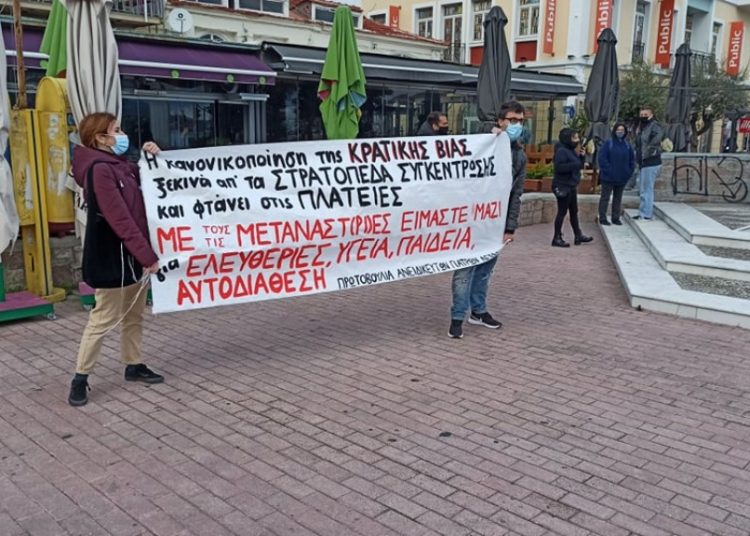 Η κανονικοποίηση της ΚΡΑΤΙΚΗΣ ΒΙΑΣ
ξεκινά απ' τα ΣΤΡΑΤΟΠΕΔΑ ΣΥΓΚΕΝΤΡΩΣΗΣ
και φτάνει στις ΠΛΑΤΕΙΕΣ
ΜΕ ΤΟΥΣ ΤΙΣ ΜΕΤΑΝΑΣΤ(ΡΙ)ΕΣ ΕΙΜΑΣΤΕ ΜΑΖΙ
για ΕΛΕΥΘΕΡΙΕΣ, ΥΓΕΙΑ, ΠΑΙΔΕΙΑ,
ΑΥΤΟΔΙΑΘΕΣΗ ΠΡΩΤΟΒΟΥΛΙΑ ΑΝΕΙΔΙΚΕΥΤΩΝ ΓΙΑΤΡΩΝ
Public
Public
Public
Public